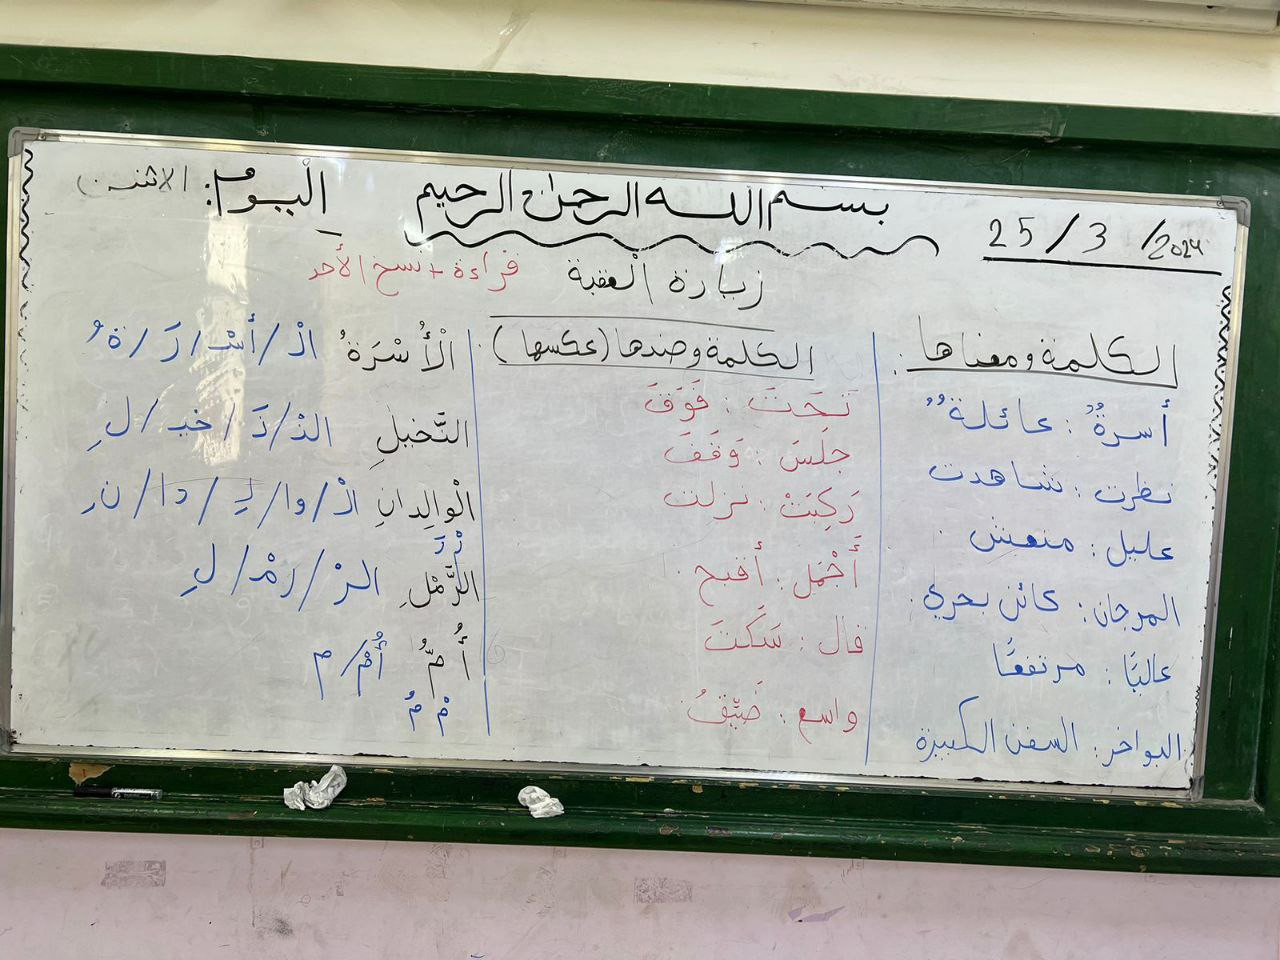 بسم الله الرحمن الرحيم
25/3/2024
اليوم: الاثنين
زيارة العقبة
قراءة + نسخ الأحد
الكلمة ومعناها:
أسرةٌ: عائلةٌ
نظرت: شاهدت
عليل: منعش
المرجان: كائن بحري
عاليًا: مرتفعًا
البواخر: السفن الكبيرة
الكلمة وضدها (عكسها):
تَحْتَ: فَوَقَ
جلَسَ: وَقَفَ
رَكِبَتْ: نزلت
أَجْمل: أقبح
قال: سَكَتَ
واسع: ضَيِّقُ
الْأُسْرَةُ الْ/أُسْ/رَ/ةُ
النَّخيلِ النْ/نَ/خيـ/لِ
الْوالِدانِ الْ/وا/لِـ/دا/نِ
رْرَ
الرَّمْلِ الرْ/رَمْ/لِ
أُمُّ أُمْ/م
مْ مُ